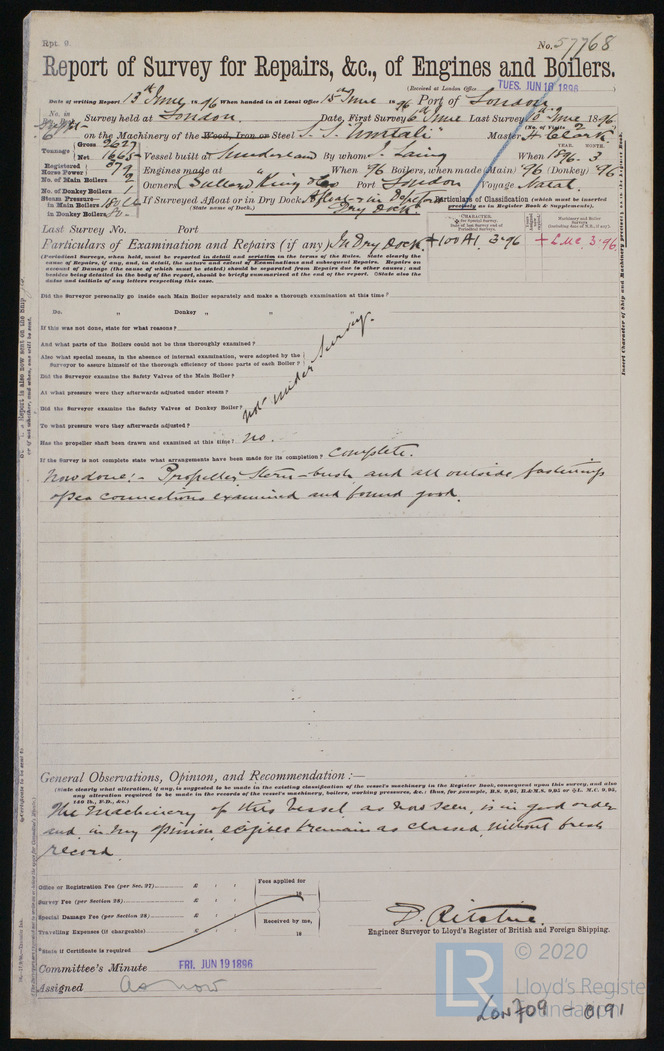 Rpt. 9.
No. 57768
Report of Survey for Repairs, &c., of Engines and Boilers.
(Received at London Office TUES. JUN 16 1896)
Date of writing Report 13th June 1896 When handed in at Local Office 15th June 1896 Port of London
No. in Survey held at London. Date, First Survey 6th June Last Survey 10th June 1896
(No. of Visits 2)
on the Machinery of the Wood, Iron or Steel S. S. "Umtali" Master A. Clark
Tonnage Gross 2627
Net 1665
Vessel built at Sunderland By whom J. Laing When 1896. 3
YEAR. MONTH.
Registered Horse Power
Engines made at " When 96 Boilers, when made (Main) 96 (Donkey) 96
No. of Main Boilers
No. of Donkey Boilers
Owners Bullard King & Co Port London Voyage Natal.
Steam Pressure in Main Boilers
in Donkey Boilers
If Surveyed Afloat or in Dry Dock Afloat & in
Dry Dock
(State name of Dock.)
Particulars of Classification (which must be inserted precisely as in Register Book & Supplements).
Last Survey No. Port
CHARACTER.
Machinery and Boiler Surveys
Particulars of Examination and Repairs (if any) In Dry Dock.
+100A1. 3.96
+ L.M.C. 3.96.
(Periodical Surveys, when held, must be reported in detail and seriatim in the terms of the Rules. State clearly the
cause of Repairs, if any, and, in detail, the nature and extent of Examinations and subsequent Repairs. Repairs on
account of Damage (the cause of which must be stated) should be separated from Repairs due to other causes; and
besides being detailed in the body of the report, should be briefly summarised at the end of the report. State also the
dates and initials of any letters respecting this case.
Did the Surveyor personally go inside each Main Boiler separately and make a thorough examination at this time?
Do. " Donkey " " "
If this was not done, state for what reasons?
And what parts of the Boilers could not be thus thoroughly examined?
Also what special means, in the absence of internal examination, were adopted by the
Surveyor to assure himself of the thorough efficiency of these parts of each Boiler?
Did the Surveyor examine the Safety Valves of the Main Boiler?
At what pressure were they afterwards adjusted under steam?
Did the Surveyor examine the Safety Valves of Donkey Boiler?
To what pressure were they afterwards adjusted?
not under Survey.
Has the propeller shaft been drawn and examined at this time? no.
If the Survey is not complete state what arrangements have been made for its completion? Complete.
Now done:- Propeller, Stern-bush and all outside fastenings
of sea connections examined and found good.
General Observations, Opinion, and Recommendation :—
(State clearly what alteration, if any, is suggested to be made in the existing classification of the vessel's machinery in the Register Book, consequent upon this survey, and also
any alteration required to be made in the records of the vessel's machinery, boilers, working pressures, &c.; thus, for example, B.S. 9,95, B.&M.S. 9,95 or L.M.C. 9,95,
140 lb., F.D., &c.)
The Machinery of this Vessel, as now seen, is in good order
and, in my opinion, eligible to remain as classed, without fresh
record.
Office or Registration Fee (per Sec. 27) £ : :
Survey Fee (per Section 28) £ : :
Special Damage Fee (per Section 28) £ : :
Travelling Expenses (if chargeable) £ : :
Fees applied for
18
Received by me,
18
State if Certificate is required
D. Ritchie.
Engineer Surveyor to Lloyd's Register of British and Foreign Shipping.
Committee's Minute FRI. JUN 19 1896
Assigned as now
LR
© 2020
Lloyd's Register
Foundation
LON709 - 0191